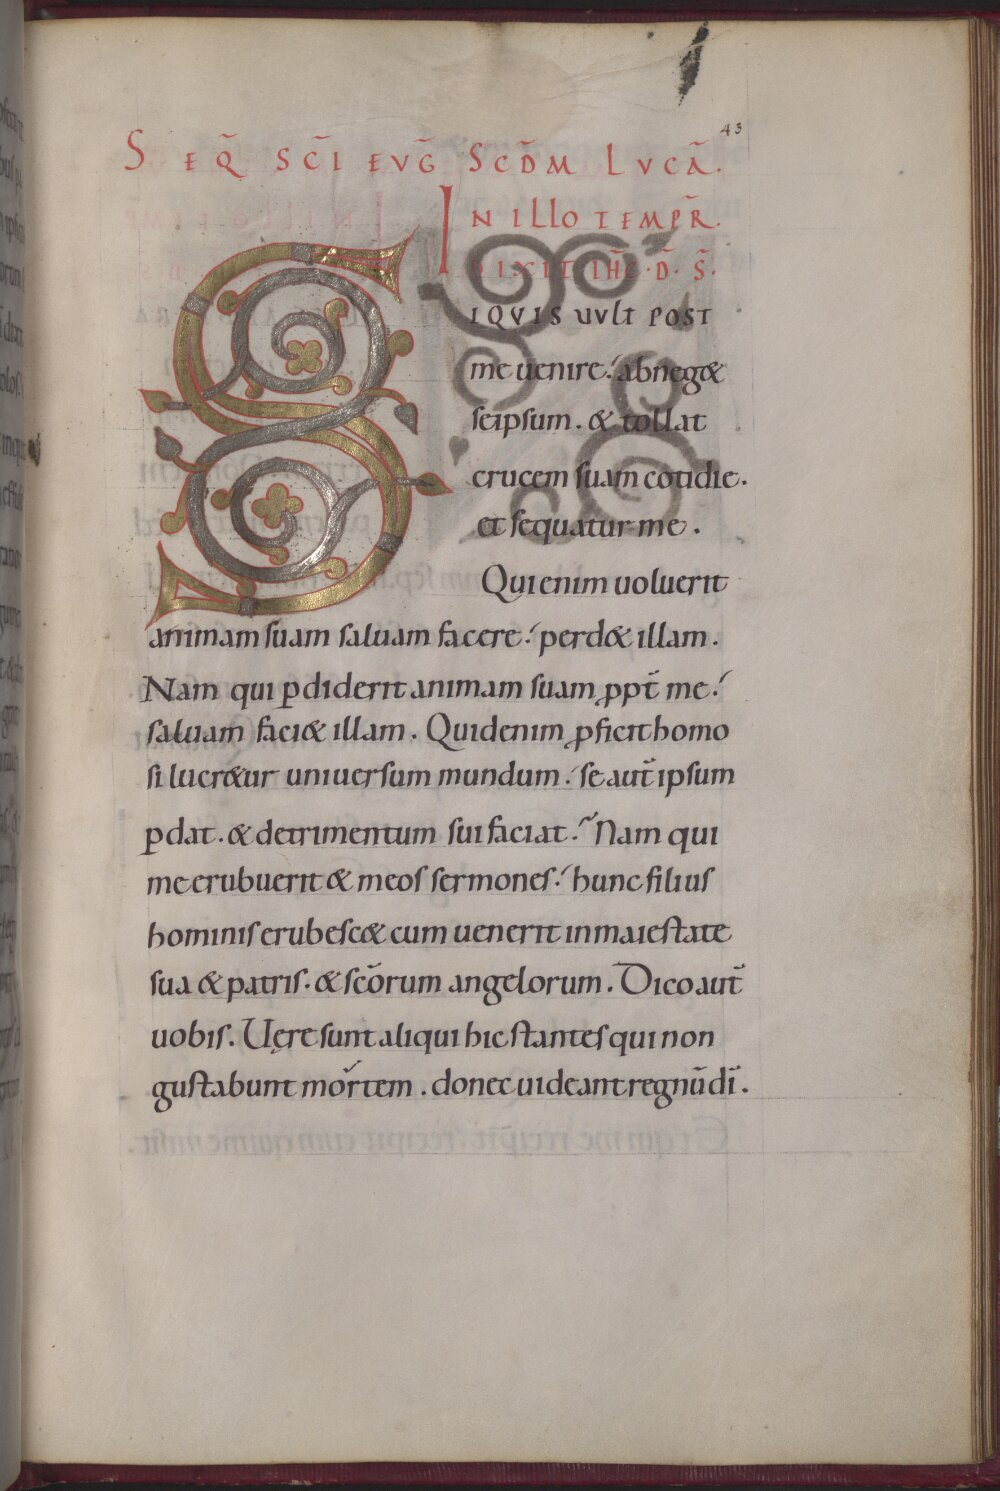 43
SEQ̄ SC̄I EVḠ SCD̄M LVCĀ.
IN ILLO TEMPR̄.
DIXIT IHC̄·D̄·S̄.
SIQVIS UVLT POST
me uenire. abneg&
seipsum. & tollat
crucem suam cotidie.
et sequatur me.
Qui enim uoluerit
animam suam saluam facere. perd& illam.
Nam qui ꝑdiderit animam suam ꝓpt̄ me.
saluam faci& illam. Quid enim ꝓficit homo
si lucr&ur uniuersum mundum. se aut̄ ipsum
ꝑdat. & detrimentum sui faciat. Nam qui
me erubuerit & meos sermones. hunc filius
hominis erubesc& cum uenerit in maiestate
sua & patris. & sc̄orum angelorum. Dico aut̄
uobis. Uęre sunt aliqui hic stantes qui non
gustabunt mortem. donec uideant regnū dī.